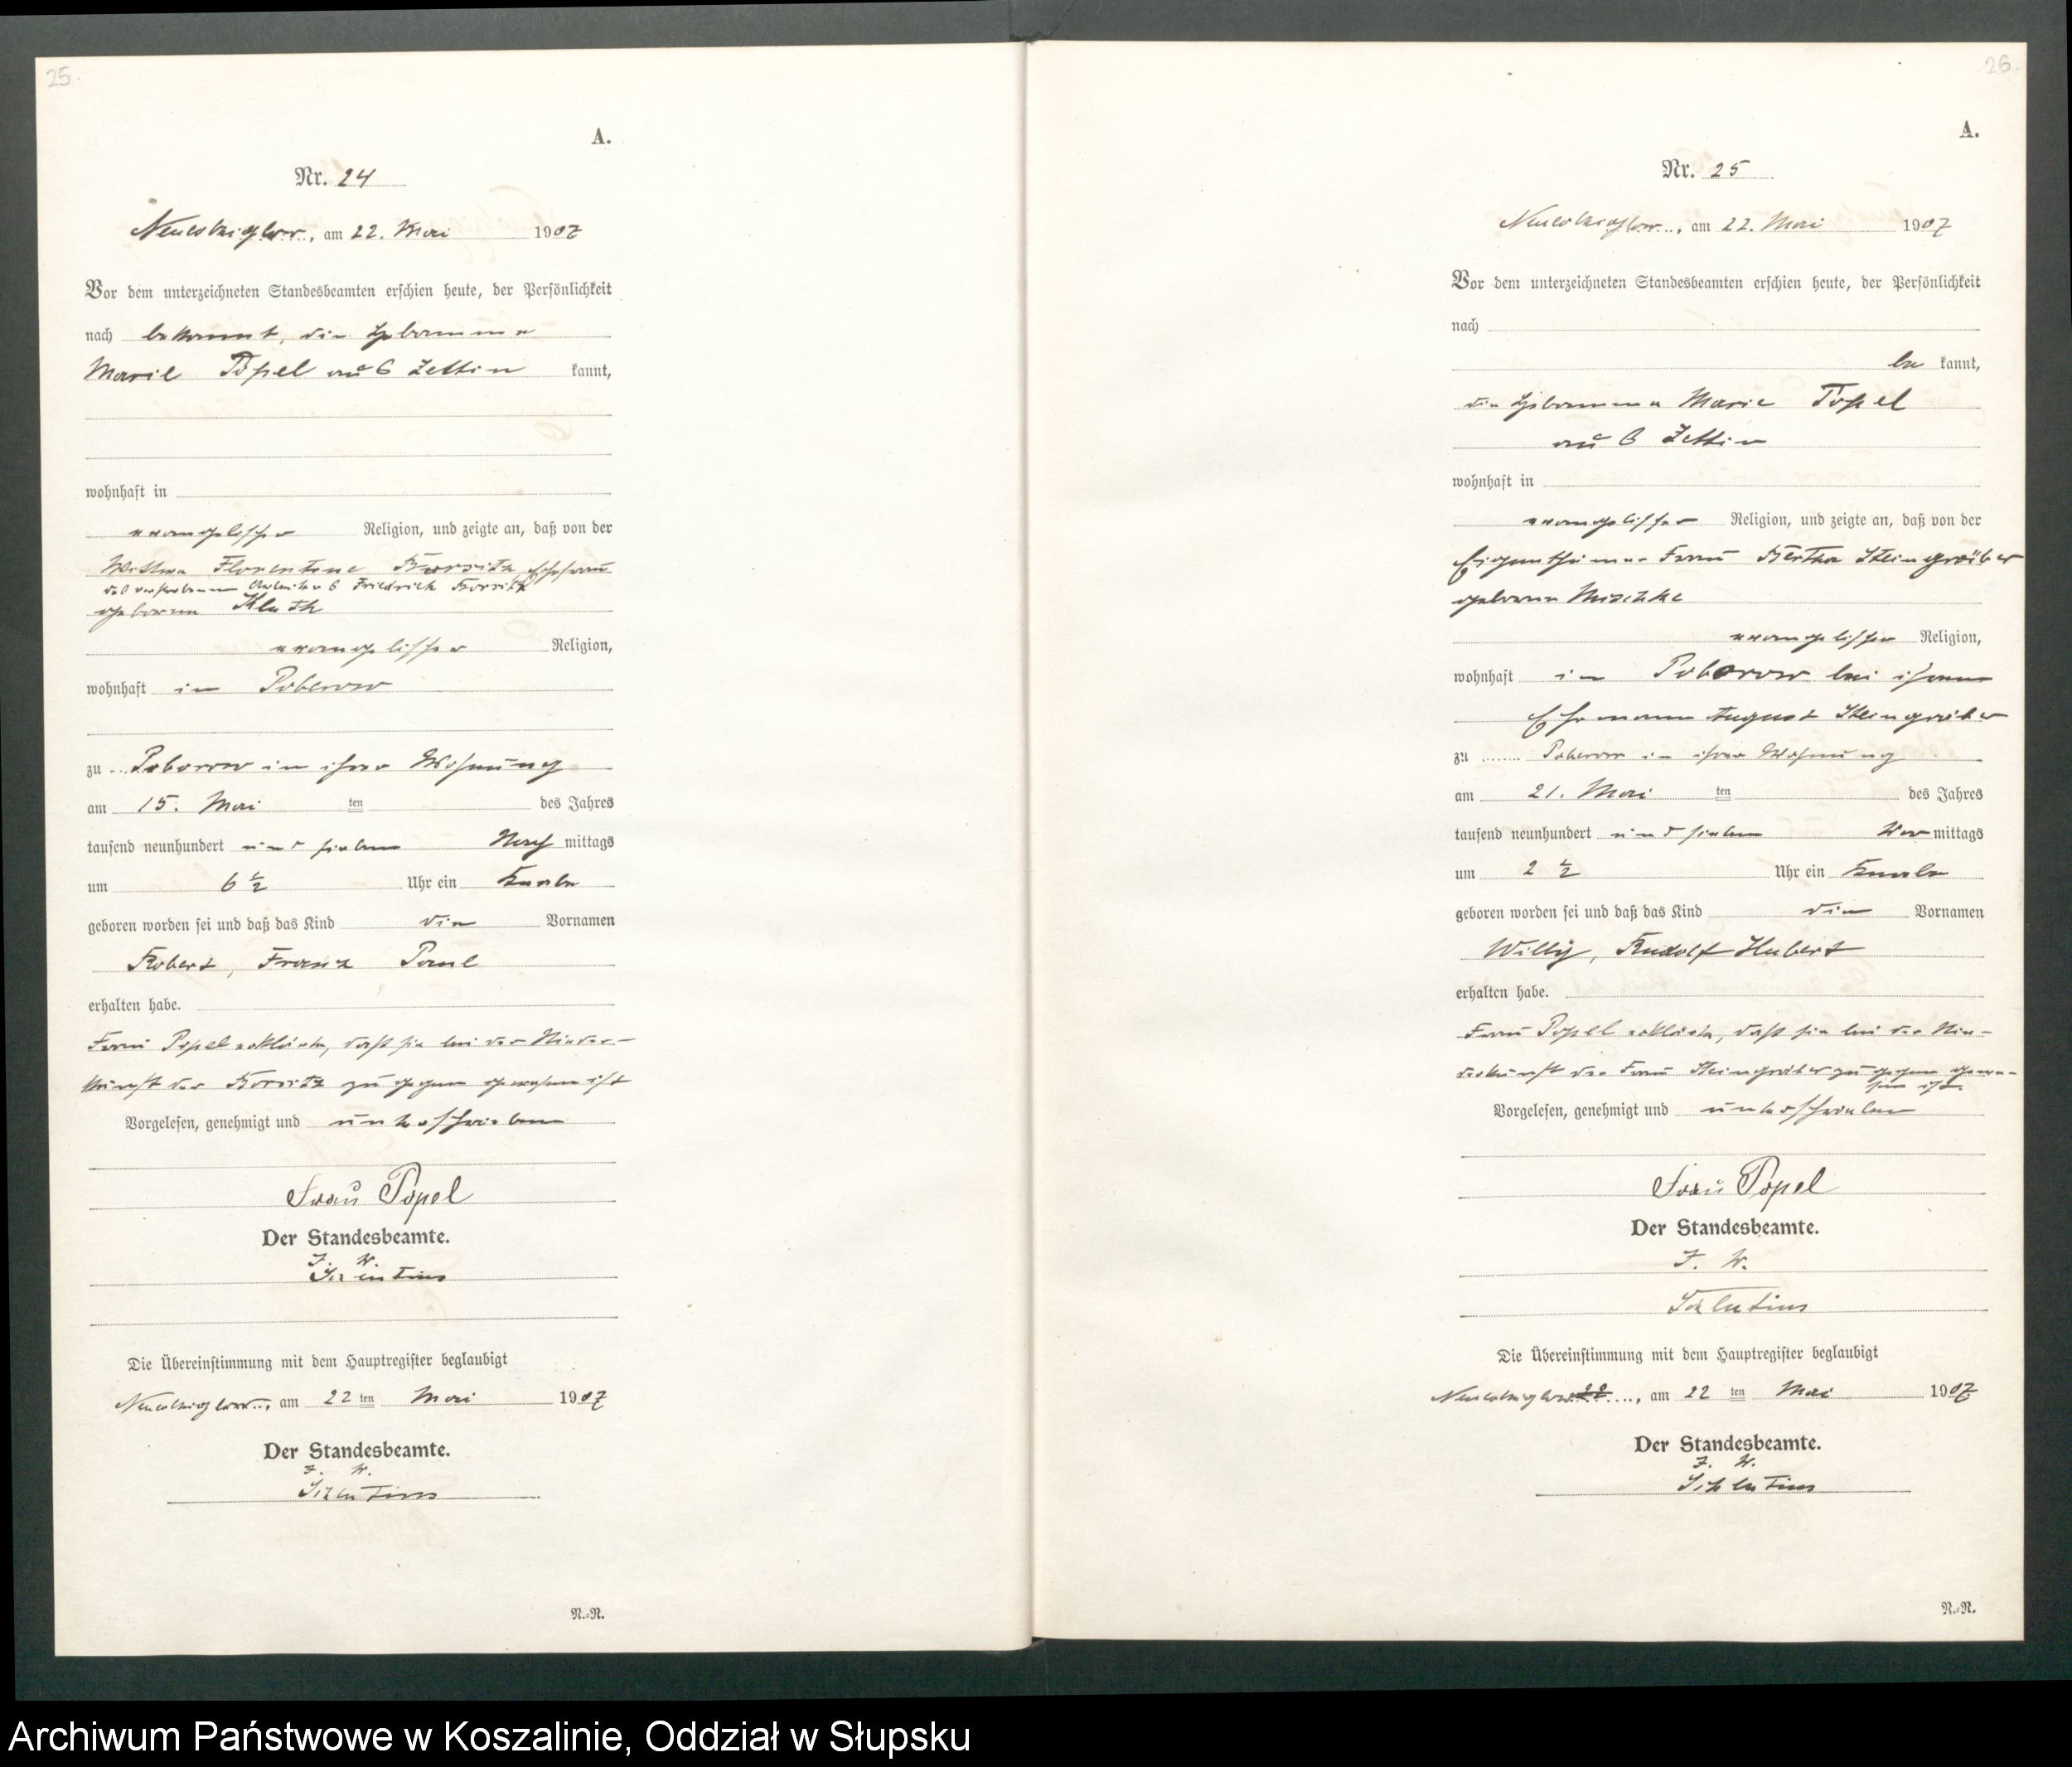 25.
A.
Nr. 24
Neukolziglow, am 22. Mai 1907
Vor dem unterzeichneten Standesbeamten erschien heute, der Persönlichkeit
nach bekannt, die Hebamme
Marie Popel aus Zettin kannt,
wohnhaft in
evangelischer Religion, und zeigte an, daß von der
Wittwe Florentine Ehefrau
des verstorbenen Arbeiters Friedrich
geborene Kluth
evangelischer Religion,
wohnhaft in Poberow
zu Poberow in ihrer Wohnung
am 15. Mai ten des Jahres
tausend neunhundert und sieben Nach mittags
um 6 ½ Uhr ein Knabe
geboren worden sei und daß das Kind die Vornamen
Robert, Franz Paul
erhalten habe.
Frau Popel erklärte, daß sie bei der Nieder-
kunft der zugegen gewesen ist
Vorgelesen, genehmigt und unterschrieben
Frau Popel
Der Standesbeamte.
J. V.
Schlutius
Die Übereinstimmung mit dem Hauptregister beglaubigt
Neukolziglow, am 22 ten Mai 1907
Der Standesbeamte.
J. V.
Schlutius
N.-N.
26.
A.
Nr. 25
Neukolziglow, am 22. Mai 1907
Vor dem unterzeichneten Standesbeamten erschien heute, der Persönlichkeit
nach
be kannt,
die Hebamme Marie Popel
aus Zettin
wohnhaft in
evangelischer Religion, und zeigte an, daß von der
Eigenthümer Frau Bertha Steingräber
geborene Mischke
evangelischer Religion,
wohnhaft in Poberow bei ihrem
Ehemann August Steingräber
zu Poberow in ihrer Wohnung
am 21. Mai ten des Jahres
tausend neunhundert und sieben Vor mittags
um 2 ½ Uhr ein Knabe
geboren worden sei und daß das Kind die Vornamen
Willy, Rudolf Hubert
erhalten habe.
Frau Popel erklärte, daß sie bei der Nie-
derkunft der Frau Steingräber zugegen gewe-
sen ist.
Vorgelesen, genehmigt und unterschrieben
Frau Popel
Der Standesbeamte.
J. V.
Schlutius
Die Übereinstimmung mit dem Hauptregister beglaubigt
Neukolziglow, am 22 ten Mai 1907
Der Standesbeamte.
J. V.
Schlutius
N.-N.
Archiwum Państwowe w Koszalinie, Oddział w Słupsku